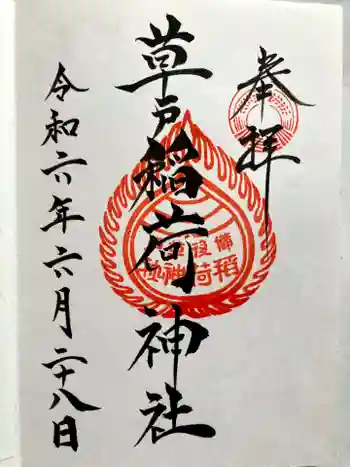 奉拝
草戸稲荷神社
令和六年六月二十八日
備後
稲荷